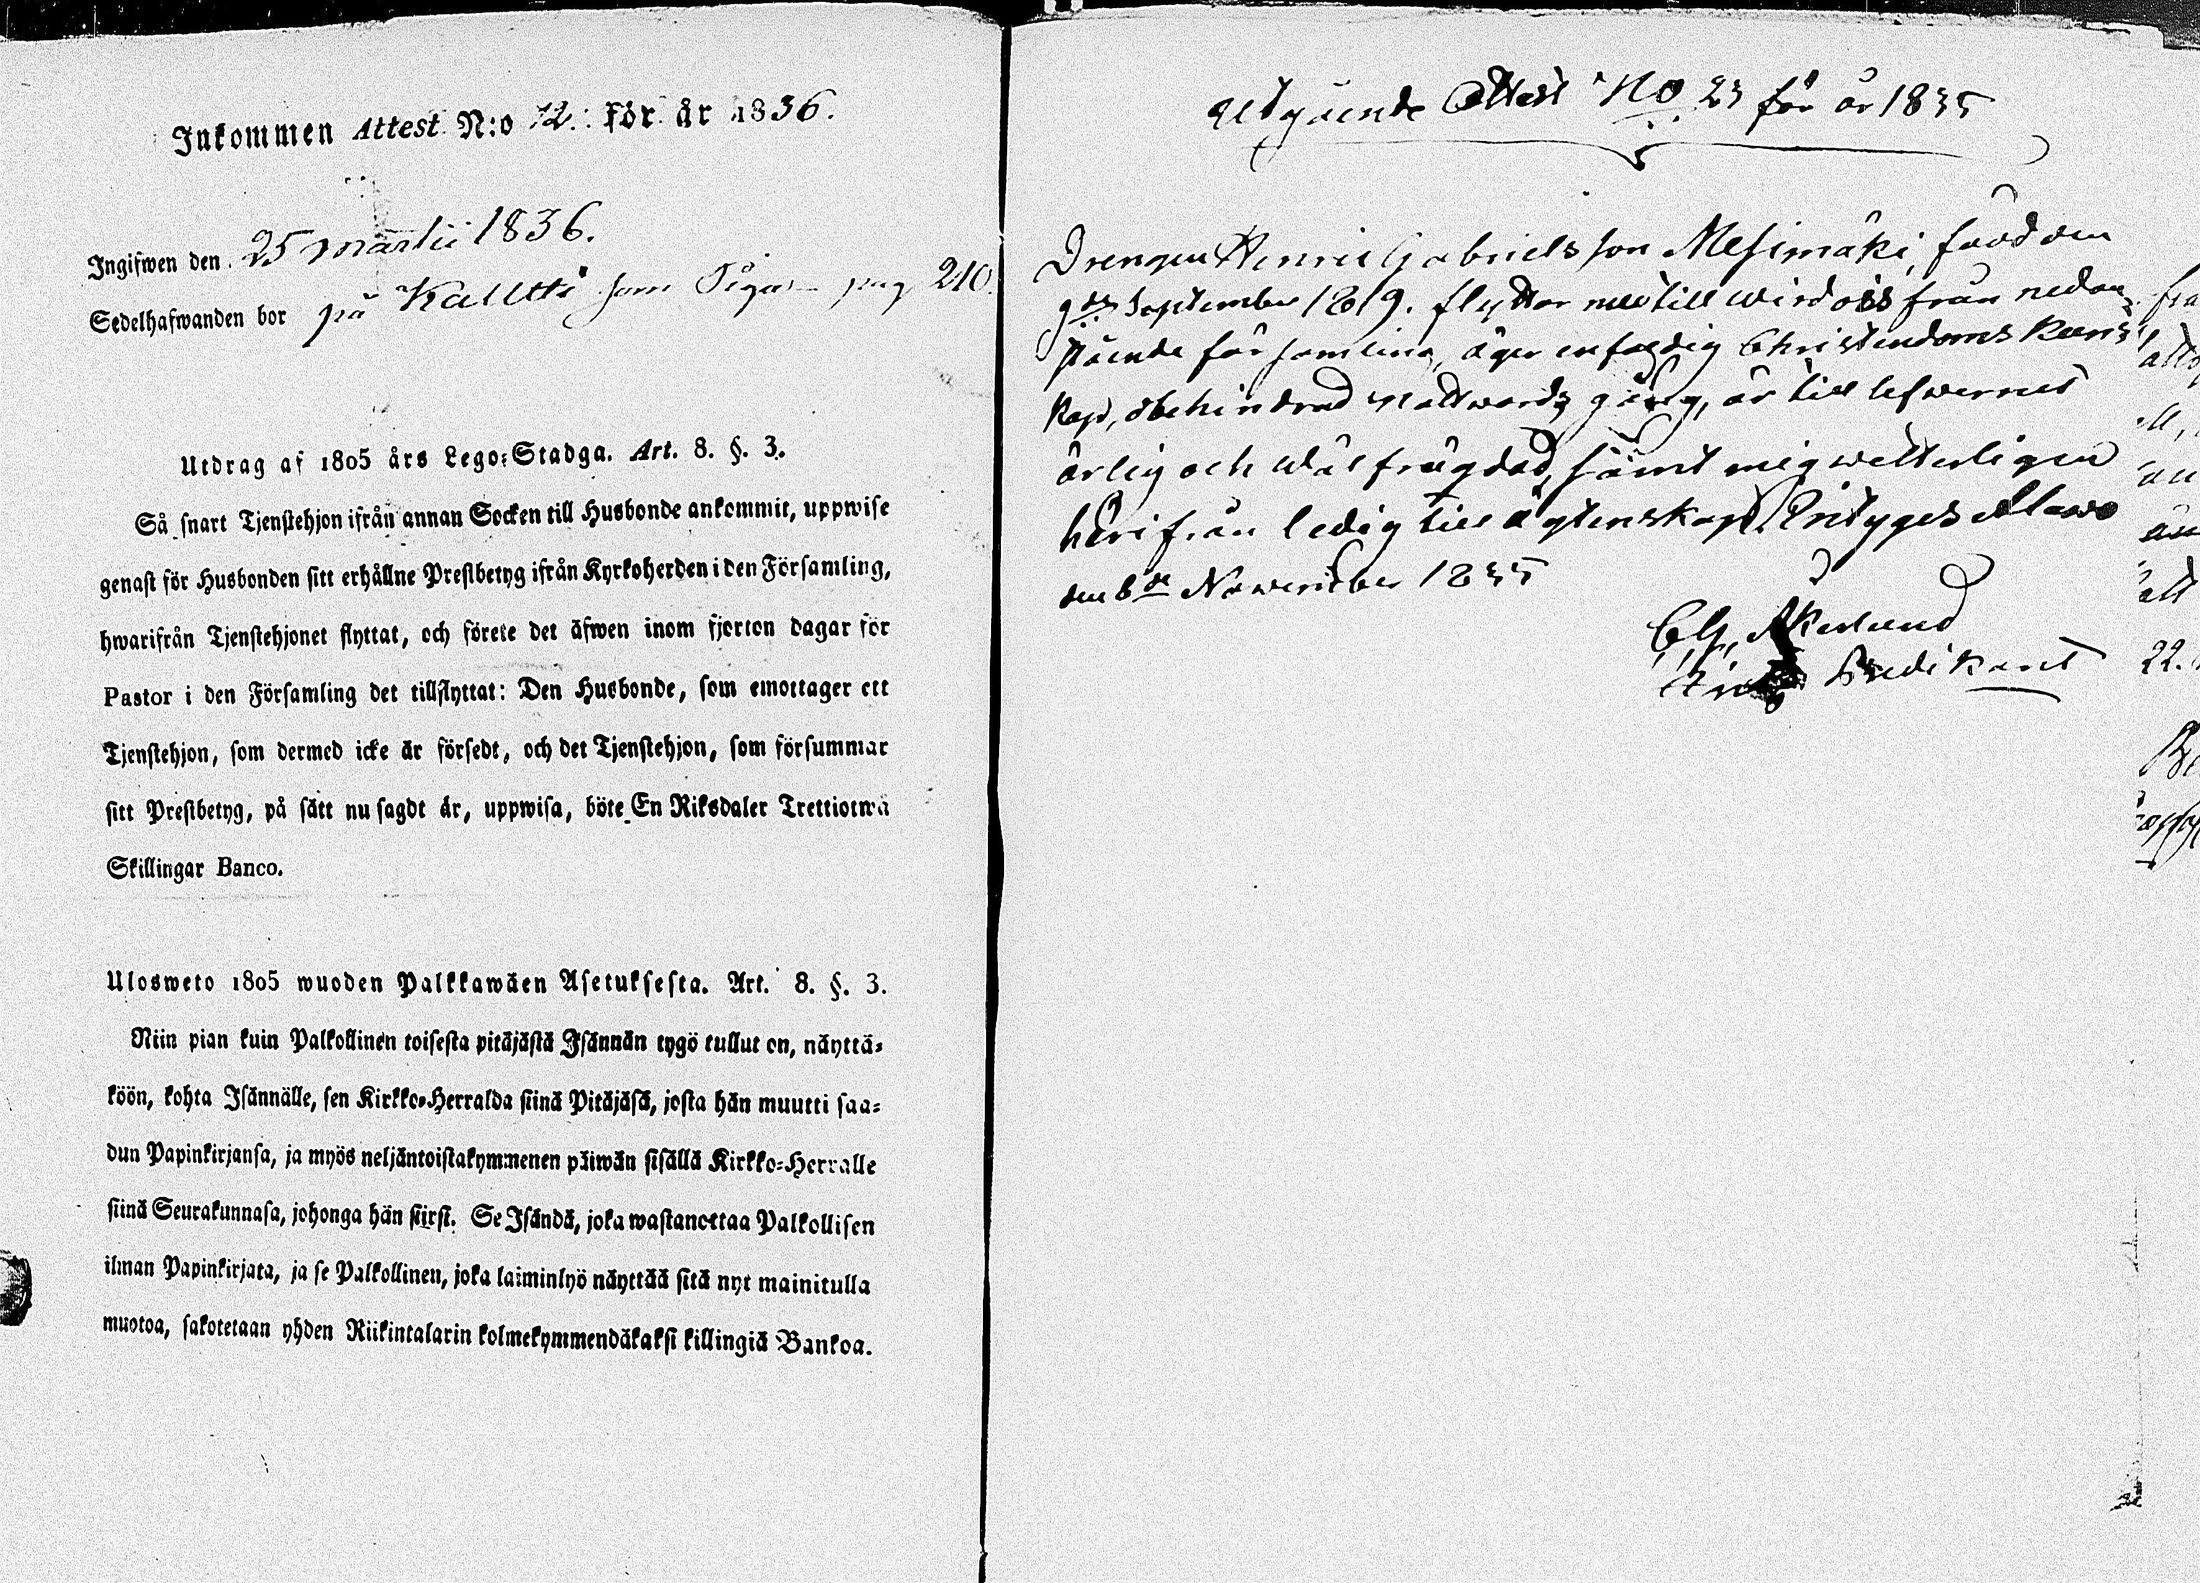 Inkommen Attest N:o 12. för år 1836.
Ingifwen den 25 martii 1836.
Sedelhafwanden bor på Kalltti som Piga pag 210.
Utdrag af 1805 års Lego-Stadga. Art. 8. §. 3.
Så snart Tjenstehjon ifrån annan Socken till Husbonde ankommit, uppwise
genast för Husbonden sitt erhållne Prestbetyg ifrån Kyrkoherden i den Församling,
hwarifrån Tjenstehjonet flyttat, och förete det äfwen inom fjorton dagar för
Pastor i den Församling det tillflyttat: Den Husbonde, som emottager ett
Tjenstehjon, som dermed icke är försedt, och det Tjenstehjon, som försummar
sitt Prestbetyg, på sätt nu sagdt är, uppwisa, böte En Riksdaler Trettiotwå
Skillingar Banco.
Ulosweto 1805 wuoden Palkkawäen Asetuksesta. Art. 8. §. 3.
Niin pian kuin Palkollinen toisesta pitäjästä Isännän tygö tullut on, näyttä-
köön, kohta Isännälle, sen Kirkko-Herralda siinä Pitäjäsä, josta hän muutti saa-
dun Papinkirjansa, ja myös neljäntoistakymmenen päiwän sisällä Kirkko-Herralle
siinä Seurakunnasa, johonga hän siirsi. Se Isändä, joka wastanottaa Palkollisen
ilman Papinkirjata, ja se Palkollinen, joka laiminlyö näyttää sitä nyt mainitulla
muotoa, sakotetaan yhden Riikintalarin kolmekymmendäkaksi killingiä Bankoa.
Utgående Attest No 23 för år 1835
Drengen Henric Gabriels son Mesimäki, född den
9de September 1819. flyttar med till Wirdois från nedan
stående församling, äger enfaldig Christendoms kuns
kap, obehindrad nattwards gång, är till lefwernet
ärlig och wäl frägdad, samt mig wetterligen
härifrån ledig till ägtenskap. Betyges Alawo
den 6de November 1835
C. G. Åkerlund
Predikant